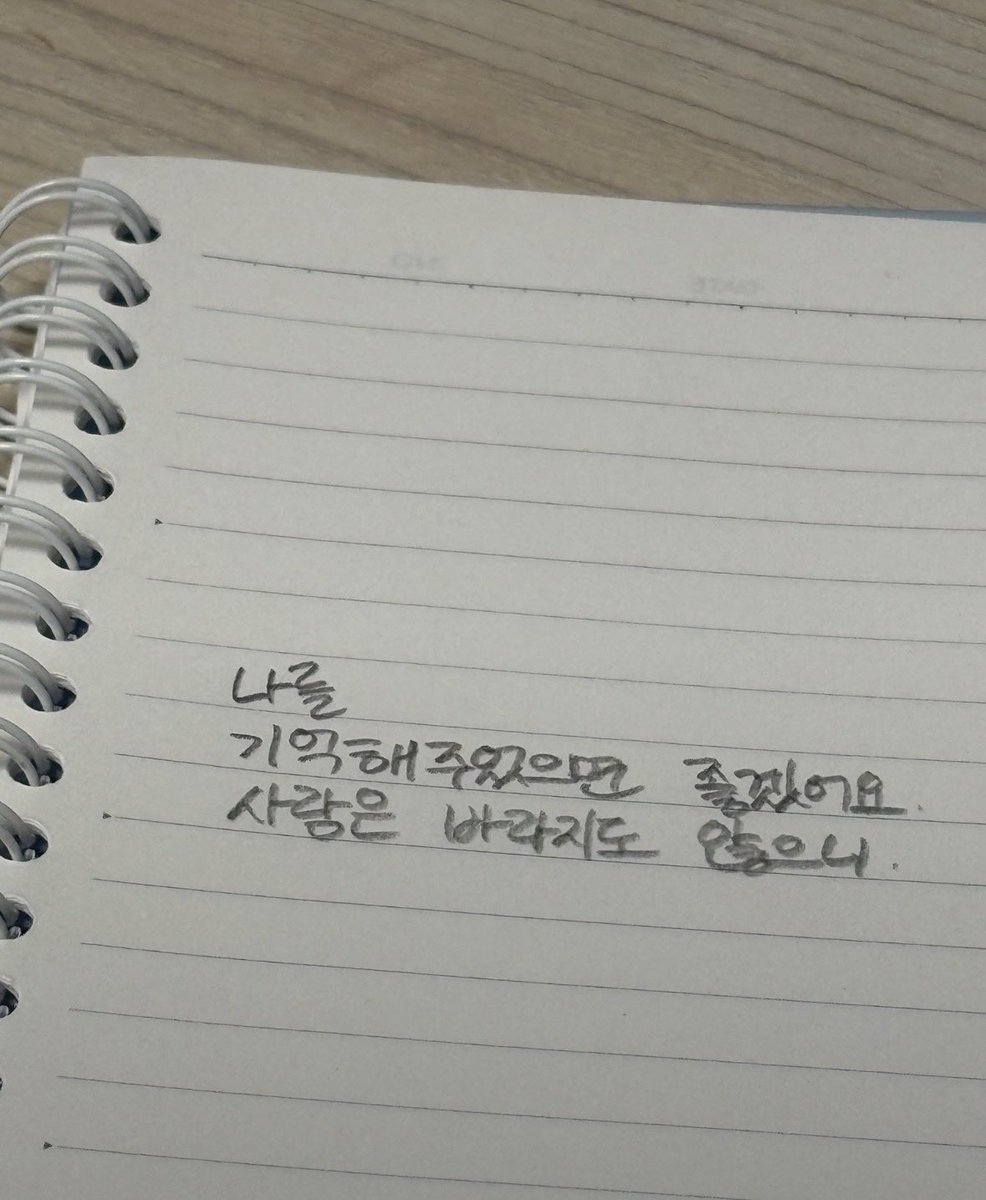 나를
기억해주었으면 좋겠어요.
사람은 바라지도 않으니.